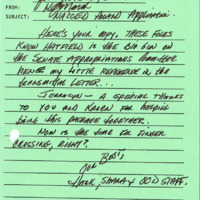 FROM:
SUBJECT: AWARD APPLICATION.
HERE'S YOUR COPY, THESE FOLKS
KNOW HATFIELD IS THE BIG GUN IN
THE SENATE APPROPRIATIONS COMMITTEE
HENCE MY LITTLE REFERENCE IN THE
TRANSMITTAL LETTER...
— A SPECIAL THANKS
TO YOU AND KAREN FOR HELPING
BRING THIS PACKAGE TOGETHER.
NOW IS THE TIME FOR FINGER
CROSSING, RIGHT?
BEST,
STAFF.